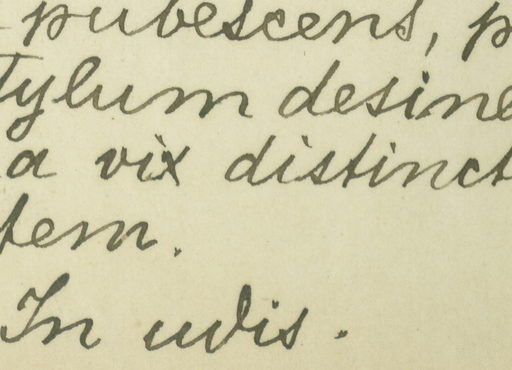 pubescens, p
tylum desine
a vix distinct
tem.
In udis.